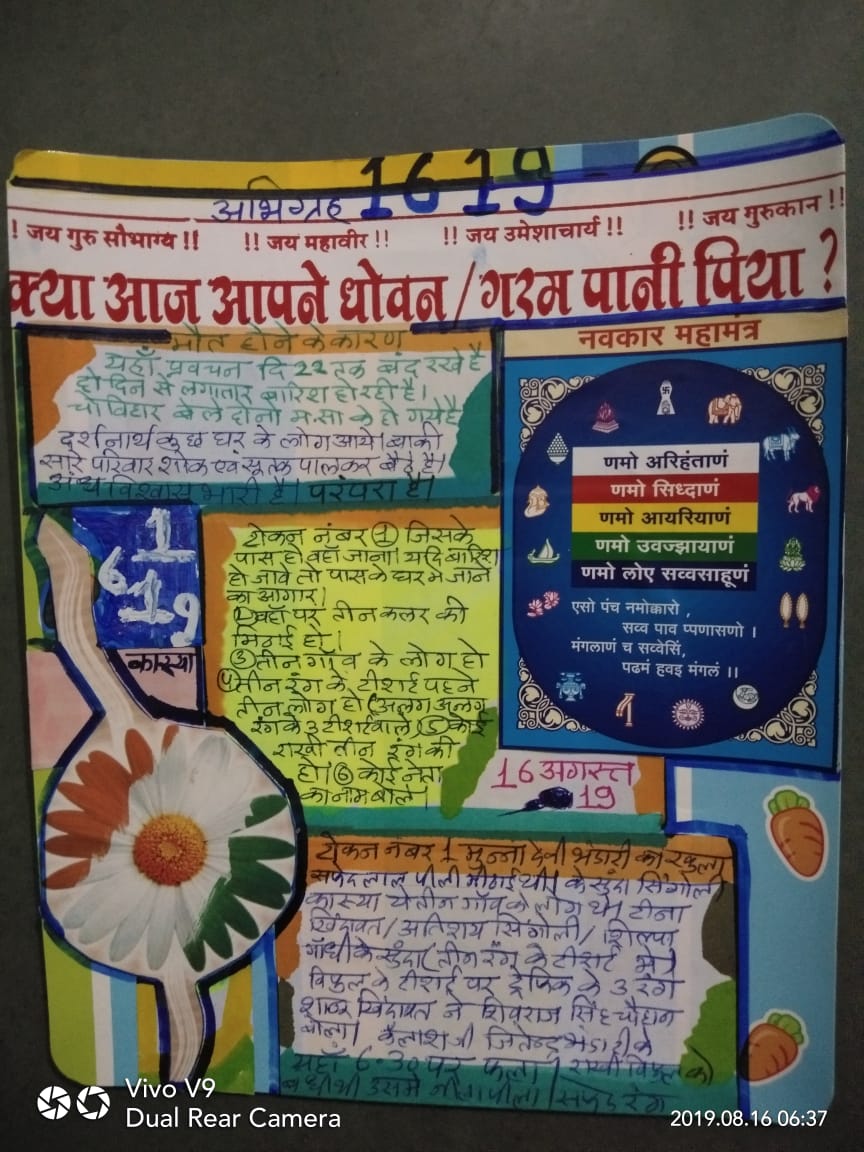 अभिग्रह 1619
! जय गुरु सौभाग्य !! !! जय महावीर !! !! जय उमेशाचार्य !! !! जय गुरुकान !!
क्या आज आपने धोवन / गरम पानी पिया ?
मौत होने के कारण
यहाँ प्रवचन दि 22 तक बंद रखे है
दो दिन से लगातार बारिश हो रही है।
चोविहार बेले दोनो म.सा के हो गये है
दर्शनार्थ कुछ घर के लोग आये। बाकी
सारे परिवार शोक एवं सूतक पालकर बैठे है।
अंध विश्वास भारी है। परंपरा है।
नवकार महामंत्र
णमो अरिहंताणं
णमो सिध्दाणं
णमो आयरियाणं
णमो उवज्झायाणं
णमो लोए सव्वसाहूणं
एसो पंच नमोक्कारो ,
सव्व पाव प्पणासणो ।
मंगलाणं च सव्वेसिं,
पढमं हवइ मंगलं ।।
1
6
19
कास्या
टोकन नंबर ① जिसके
पास हो वहाँ जाना। यदि बारिश
हो जावे तो पास के घर मे जाने
का आगार।
वहाँ पर तीन कलर की
मिठाई हो।
③ तीन गाँव के लोग हो
④ तीन रंग के टीशर्ट पहने
तीन लोग हो (अलग अलग
रंग के 3 टीशर्ट वाले) ⑤ कोई
राखी तीन रंग की
हो। ⑥ कोई नेता
का नाम बोले।
16 अगस्त
19
टोकन नंबर 1 मुन्ना देवी भंडारी का खुला
सफेद लाल पीली मीठाई थी। केसुंदा सिंगोली
कास्या ये तीन गाँव के लोग थे। टीना
खिंदावत / अतिशय सिंगोली / शिल्पा
गाँधी केसुंदा (तीन रंग के टीशर्ट में)
विपुल के टीशर्ट पर ट्रेफिक के 3 रंग
खिंदावत ने शिवराज सिंह चौहान
बोला। कैलाश जी जितेन्द्र भंडारी के
यहाँ 6.30 पर फला। राखी विपुल को
बंधी थी उसमे नीला पीला / सफेद रंग
Vivo V9
Dual Rear Camera
2019.08.16 06:37